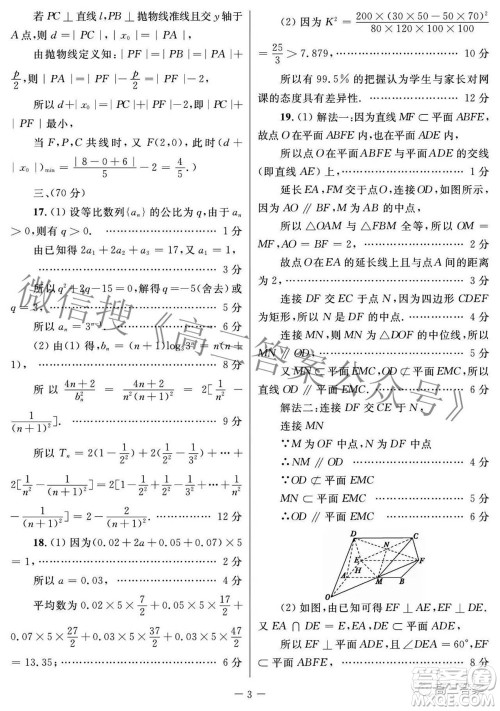 若 PC⊥直线 l,PB⊥抛物线准线且交 y 轴于
A 点,则 d=|PC|,|x₀|=|PA|,
由抛物线定义知:|PF|=|PB|=|PA|+
p/2,则|x₀|=|PA|=|PF|-p/2=|PF|-2,
所以 d+|x₀|=|PC|+|PF|-2,即|PC|+
|PF|最小,
当 F,P,C 共线时,又 F(2,0),此时(d+
|x₀|)min=|8-0+6|/5-2=4/5.
三、(70 分)
17.(1)设等比数列{aₙ}的公比为 q,由于 aₙ
>0,则有 q>0. 1 分
由已知得 2a₁+2a₂+a₃=17,又 a₁=1,
3 分
所以 q²+2q-15=0,解得 q=-5(舍去)或
q=3. 5 分
所以 aₙ=3ⁿ⁻¹. 6 分
(2)由(1)得,bₙ=(n+1)log₃3ⁿ=n(n+
1), 8 分
所以 (4n+2)/bₙ²=(4n+2)/(n²(n+1)²)=2[1/n²-
1/(n+1)²]. 9 分
所以 Tₙ=2(1-1/2²)+2(1/2²-1/3²)+…
+2[1/n²-1/(n+1)²]=2[1-1/(n+1)²]=2-2/(n+1)².
12 分
18.(1)因为(0.02+2a+0.05+0.07)×5
=1, 2 分
所以 a=0.03, 4 分
平均数为 0.02×5×7/2+0.03×5×17/2+
0.07×5×27/2+0.03×5×37/2+0.05×5×
=13.35; 6 分
(2)因为 K²=200×(30×50-50×70)²/(80×120×100×100)=
25/3>7.879, 10 分
所以有 99.5%的把握认为学生与家长对网
课的态度有差异性. 12 分
19.(1)解法一:因为直线 MF⊂平面 ABFE,
故点 O 在平面 ABFE 内也在平面 ADE 内,
所以点 O 在平面 ABFE 与平面 ADE 的交线
(即直线 AE)上, 1 分
延长 EA,FM 交于点 O,连接 OD,如图所示,
因为 AO∥BF,M 为 AB 的中点,
所以△OAM 与△FBM 全等, 2 分
故点 O 在 EA 的延长线上且与点 A 间的距离
为 2, 3 分
连接 DF 交 EC 于点 N,因为四边形 CDEF
为矩形,所以 N 是 DF 的中点,
连接 MN,则 MN 为△DOF 的中位线,所以
MN∥OD, 5 分
又 MN⊂平面 EMC,OD⊄平面 EMC,所以直
线 OD∥平面 EMC. 6 分
解法二:连接 DF 交 CE 于 N,
连接 MN
∵M 为 OF 中点,N 为 DF 中点
∴NM∥OD 4 分
∵OD⊄平面 EMC
MN⊂平面 EMC 5 分
∴OD∥平面 EMC 6 分
D
C
N
E
F
H
A
M
B
O
(2)如图,由已知可得 EF⊥AE,EF⊥DE,又
AE∩DE=E,所以 EF⊥平面 ADE,
所以平面 ABFE⊥平面 ADE,且∠DEA=60°,EF
⊂平面 ABFE, 8 分
— 3 —
微信搜《高三答案公众号》